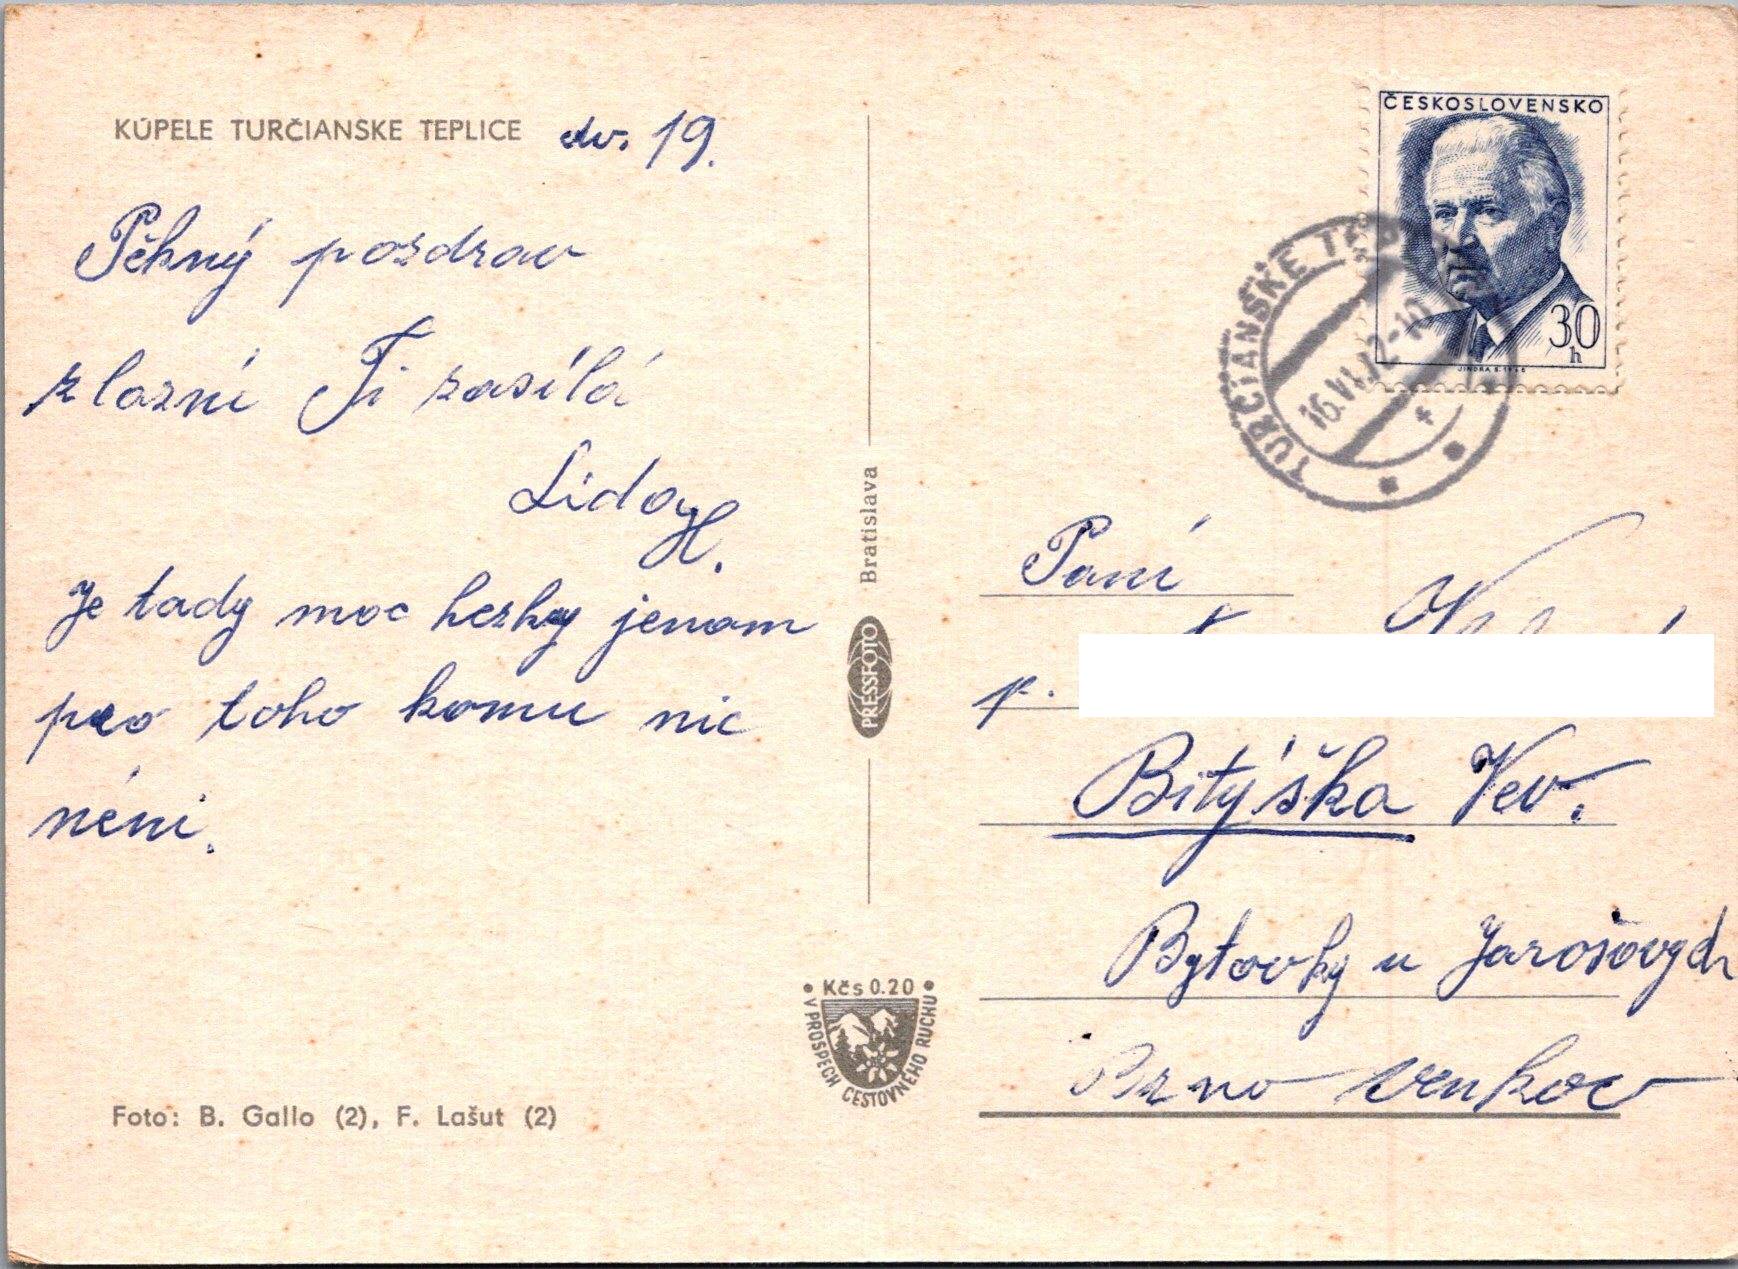 KÚPELE TURČIANSKE TEPLICE
dv. 19.
Pěkný pozdrav
z lázní Ti zasílá
Lida H.
Je tady moc hezky jenom
pro toho komu nic
néni.
PRESSFOTO Bratislava
• Kčs 0.20 •
V PROSPECH CESTOVNÉHO RUCHU
Foto: B. Gallo (2), F. Lašut (2)
ČESKOSLOVENSKO
30
h
JINDRA S.
TURČIANSKE TEPLICE
16.VI.72-10
Paní
p.
Bitýška Vev.
Bytovky u Jarošových
Brno venkov